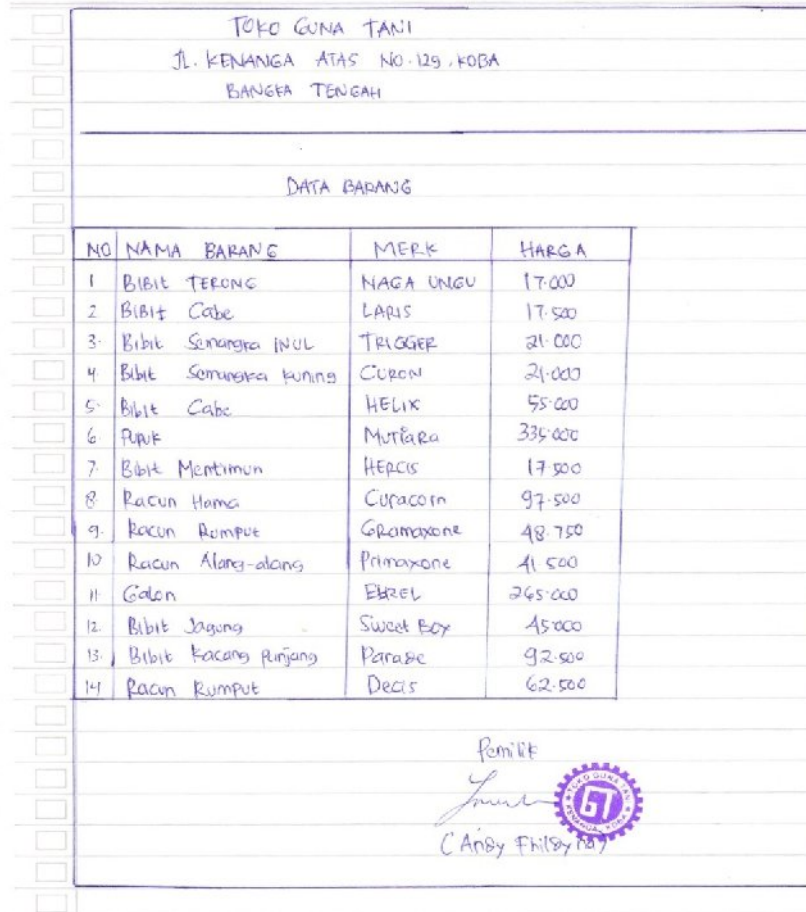 TOKO GUNA TANI
JL. KENANGA ATAS NO. 129, KOBA
BANGKA TENGAH
DATA BARANG
NO NAMA BARANG MERK HARGA
1 BIBIT TERONG NAGA UNGU 17.000
2 BIBIT Cabe LARIS 17.500
3. Bibit Semangka INUL TRIGGER 21.000
4. Bibit Semangka kuning CURON 21.000
5. Bibit Cabe HELIX 55.000
6. Pupuk MUTIARA 335.000
7. Bibit Mentimun HERCIS 17.500
8 Racun Hama Curacorn 97.500
9. Racun Rumput GRamaxone 48.750
10 Racun Alang-alang Primaxone 41.500
11. Galon 265.000
12. Bibit Jagung Sweet Boy 45.000
13. Bibit Kacang Panjang Parade 92.500
14 Racun Rumput Decis 62.500
Pemilik
TOKO GUNA TANI
GT
KENANGA, KOBA
(Andy